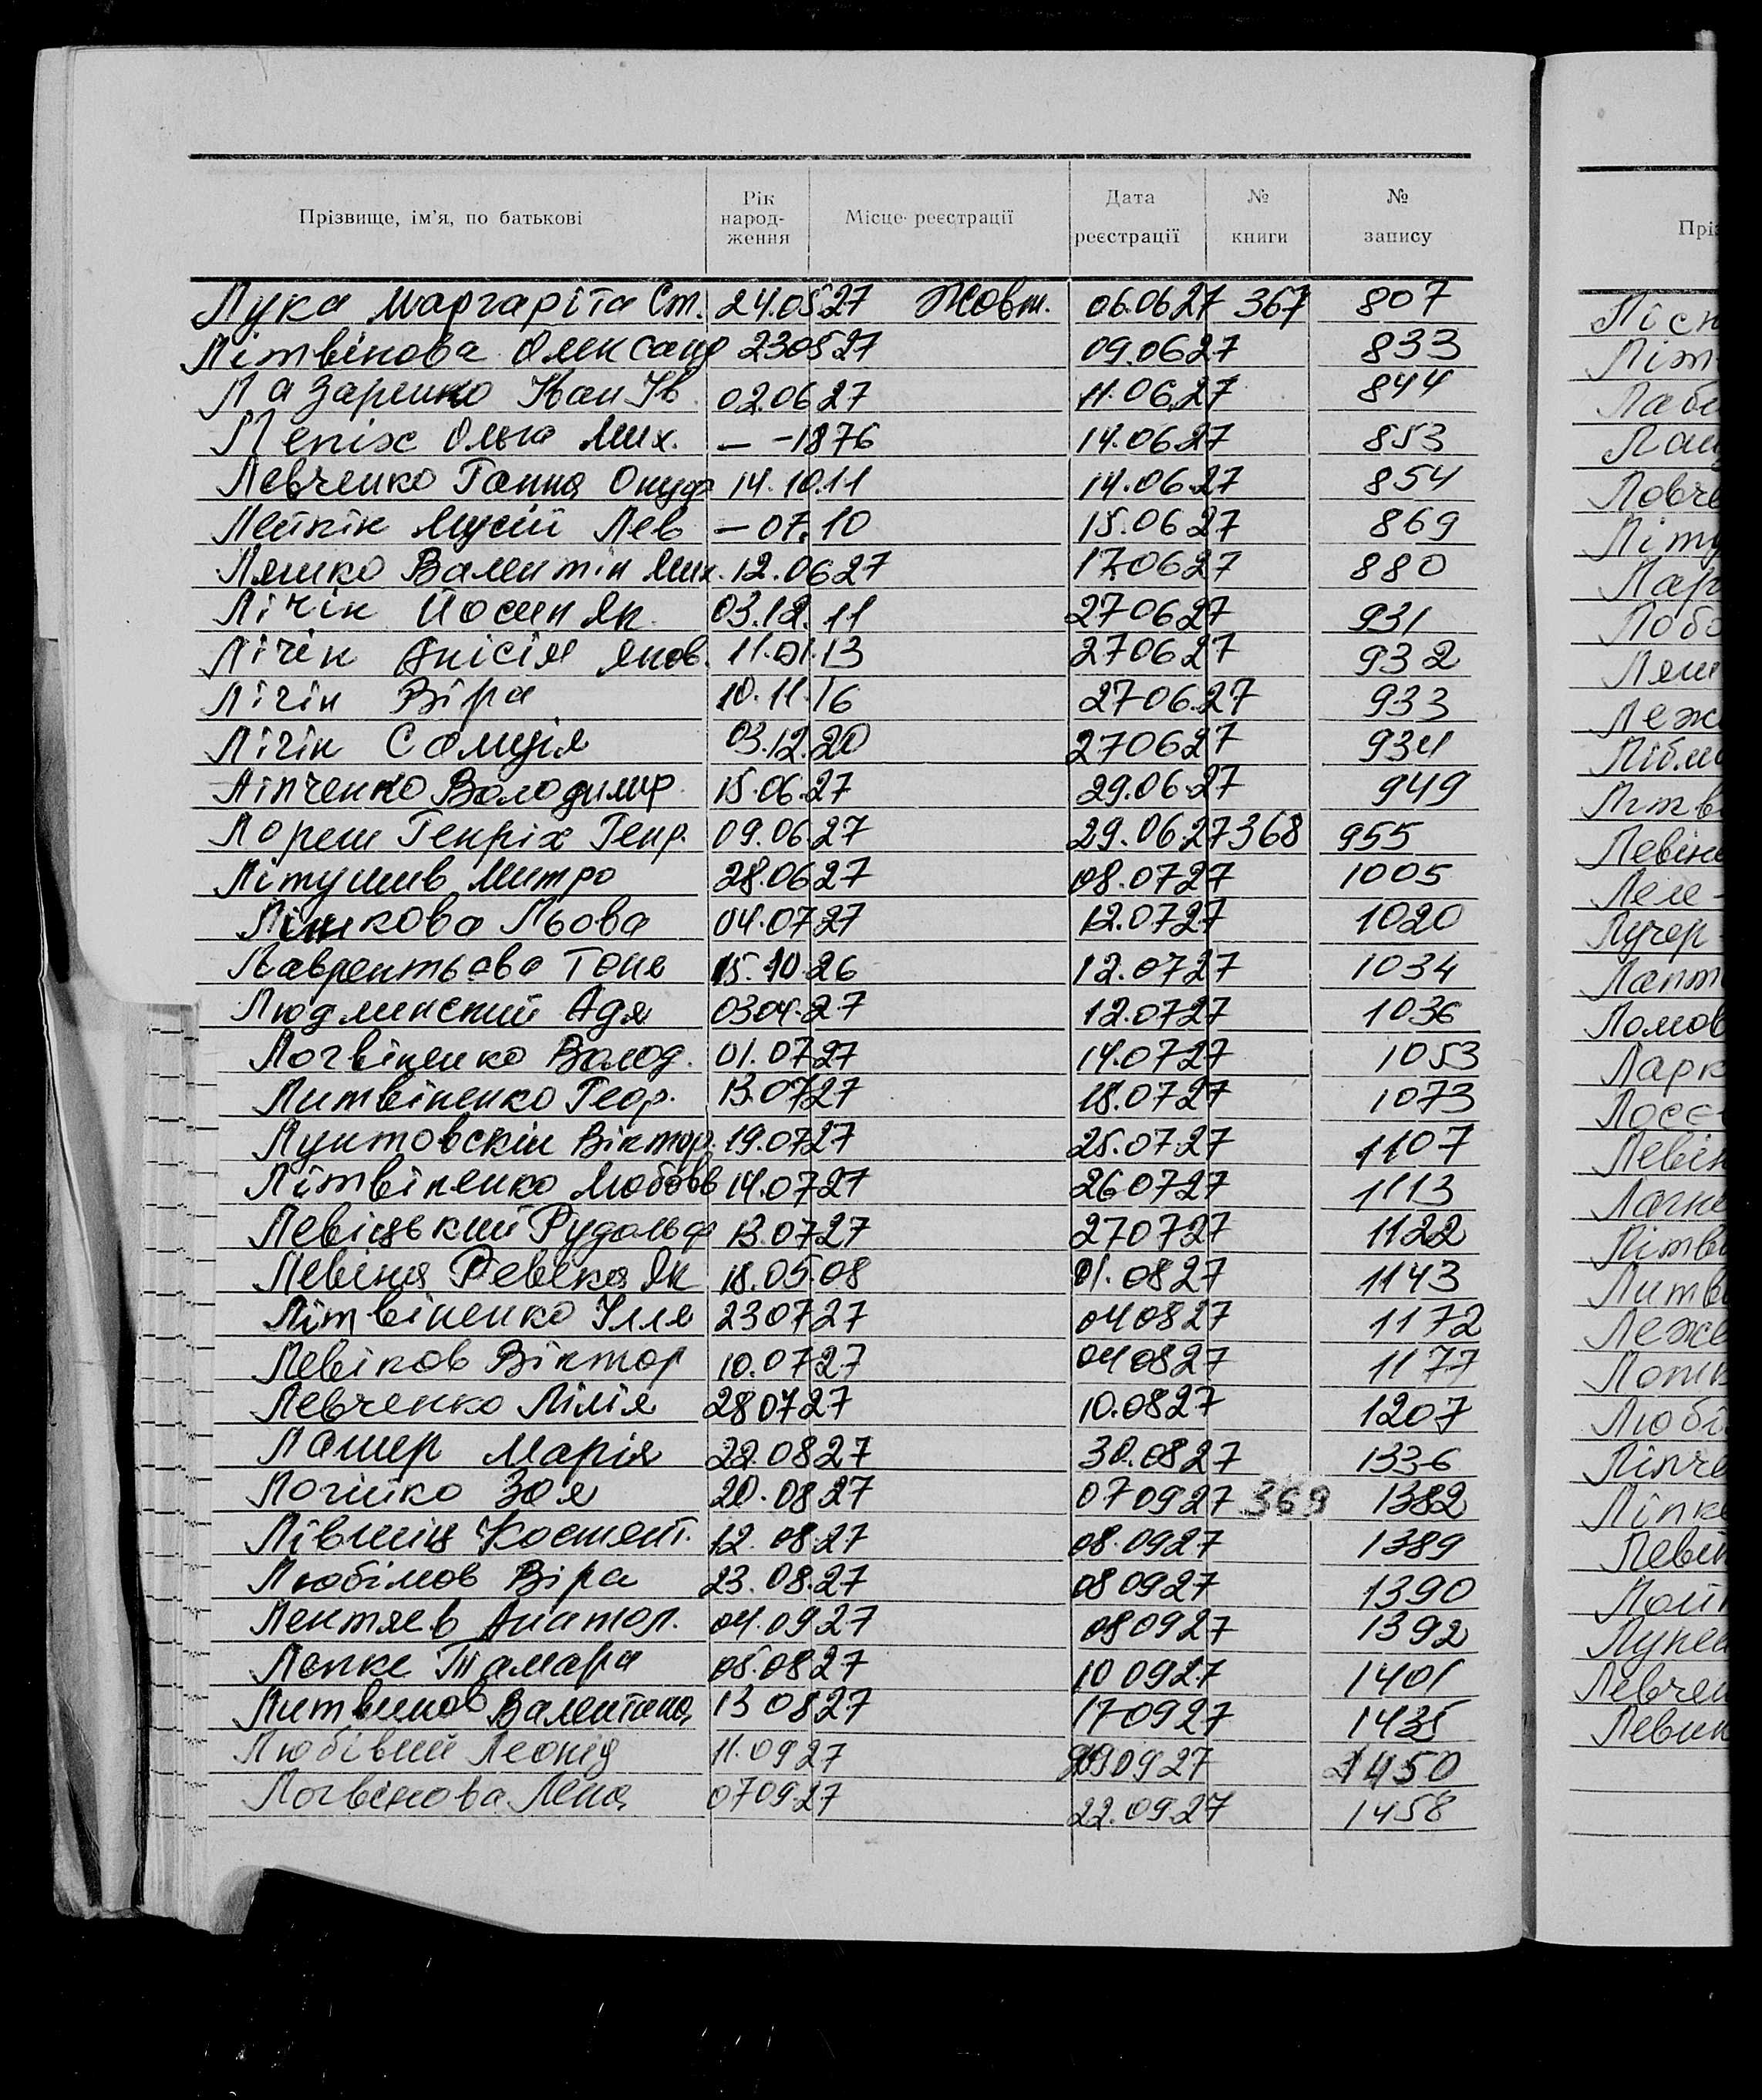 Прізвище, ім'я, по батькові Рік народження Місце реєстрації Дата реєстрації № книги № запису
Лука Маргаріта Ст. 24.05.27 Жовт. 06.06.27 367 807
Літвінова Олександ 23.05.27 09.06.27 833
Лазаренко Іван Ів. 02.06.27 11.06.27 844
Лепіх Ольга Мих. — -1876 14.06.27 853
Левченко Ганна Онуф 14.10.11 14.06.27 854
Лейкік Мусій Лев — 07.10 15.06.27 869
Ляшко Валентін Мих. 12.06.27 17.06.27 880
Лічік Йосип Як. 03.12.11 27.06.27 931
Лічік Анісія Яков. 11.01.13 27.06.27 932
Лічік Віра 10.11.16 27.06.27 933
Лічік 03.12.20 27.06.27 934
Ліпченко Володимир 15.06.27 29.06.27 949
Лореш Генріх Генр. 09.06.27 29.06.27 368 955
Митро 28.06.27 08.07.27 1005
Льова 04.07.27 12.07.27 1020
Лаврентьева Тоня 15.10.26 12.07.27 1034
Людминский Адя 03.04.27 12.07.27 1036
Логвіненко Волод. 01.07.27 14.07.27 1053
Литвіненко Геор. 13.07.27 18.07.27 1073
Лунтовскій Віктор. 19.07.27 25.07.27 1107
Літвіненко Любовь 14.07.27 26.07.27 1113
Левіцький Рудольф 13.07.27 27.07.27 1122
Левіна Ревека Як 18.05.08 01.08.27 1143
Літвіненко Ілля 23.07.27 04.08.27 1172
Левіков Віктор 10.07.27 04.08.27 1177
Левченко Лілія 28.07.27 10.08.27 1207
Марія 22.08.27 30.08.27 1336
Зоя 20.08.27 07.09.27 369 1382
Лівшиц Костянт. 12.08.27 08.09.27 1389
Любімов Віра 23.08.27 08.09.27 1390
Лентяев Анатол. 04.09.27 08.09.27 1392
Лепке Тамара 05.08.27 10.09.27 1401
Литвинов Валентина 13.08.27 17.09.27 1435
Любівий Леонід 11.09.27 1450
Логвінова Лена 07.09.27 22.09.27 1458